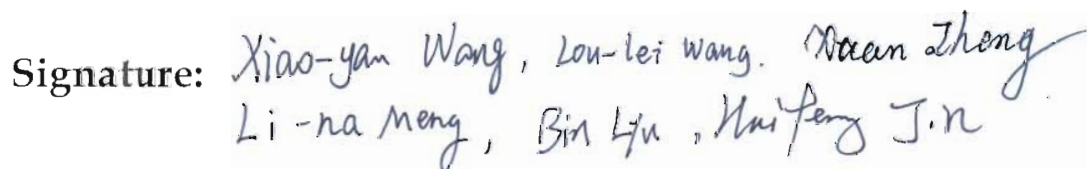 Signature: Xiao-yan Wang, Lou-lei wang. Xuan Zheng
Li-na Meng, Bin Lyu, Haifeng Jin